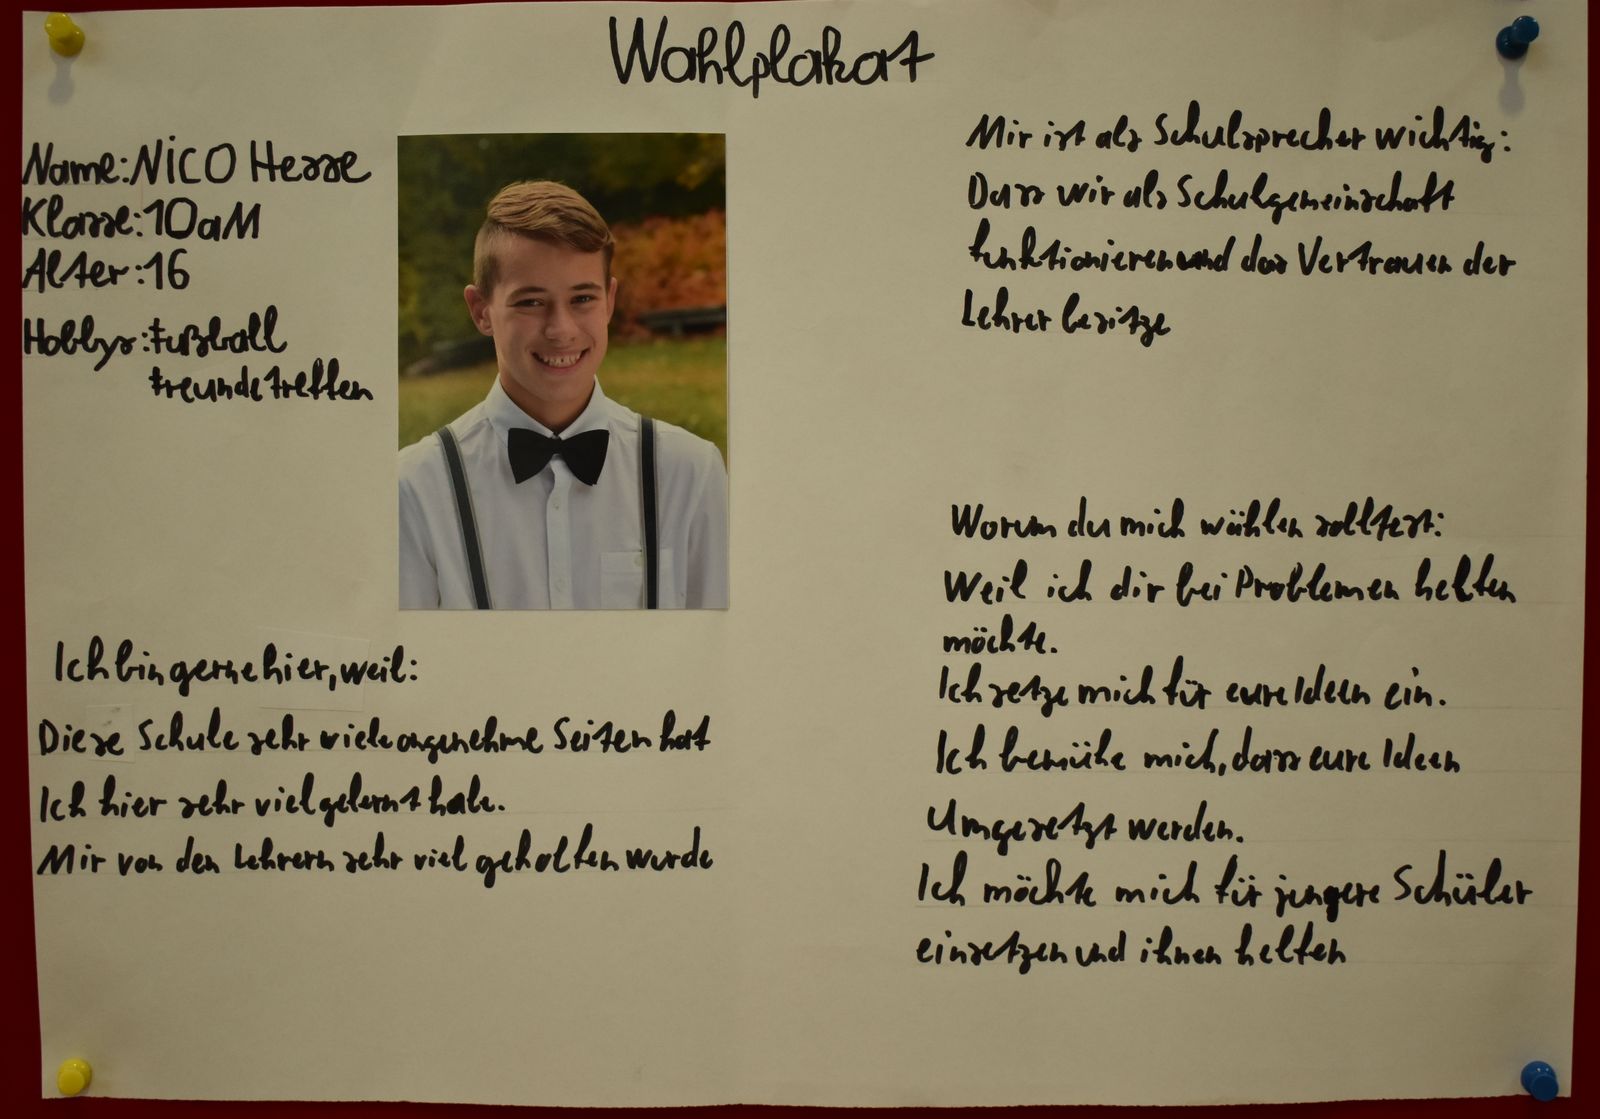 Wahlplakat
Name: NiCO Hesse
Klasse: 10aM
Alter: 16
Hobbys: fußball
freunde treffen
Ich bin gerne hier, weil:
Diese Schule sehr viele angenehme Seiten hat
Ich hier sehr viel gelernt habe.
Mir von den Lehrern sehr viel geholfen wurde
Mir ist als Schulsprecher wichtig:
Dass wir als Schulgemeinschaft
funktionieren und das Vertrauen der
Lehrer besitze
Warum du mich wählen solltest:
Weil ich dir bei Problemen helfen
möchte.
Ich setze mich für eure Ideen ein.
Ich bemühe mich, dass eure Ideen
Umgesetzt werden.
Ich möchte mich für jungere Schüler
einsetzen und ihnen helfen